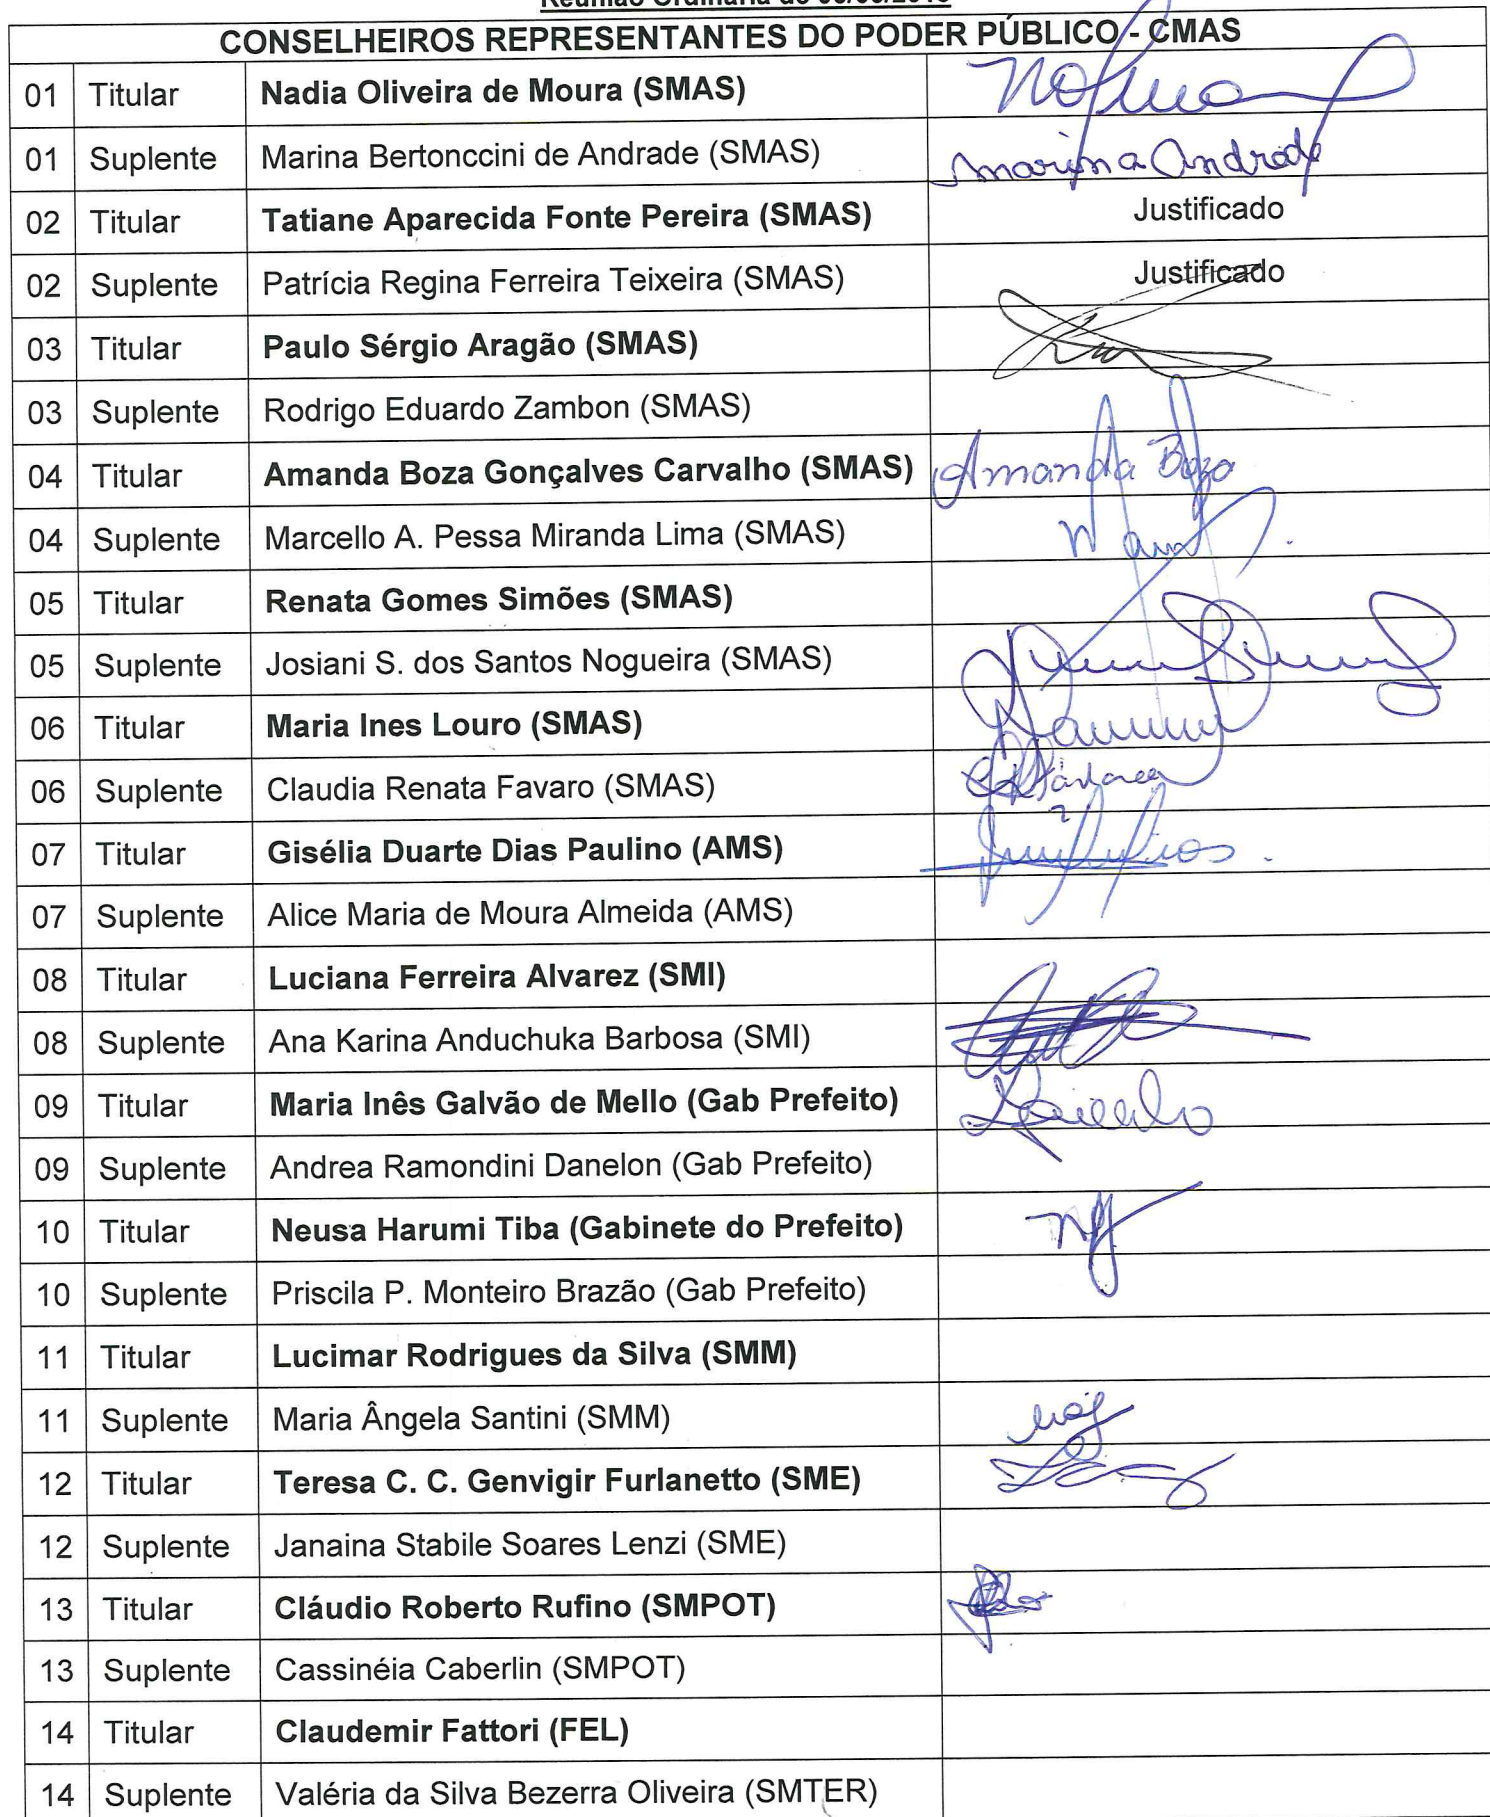 CONSELHEIROS REPRESENTANTES DO PODER PÚBLICO - CMAS
01 Titular Nadia Oliveira de Moura (SMAS)
01 Suplente Marina Bertonccini de Andrade (SMAS) Marina Andrade
02 Titular Tatiane Aparecida Fonte Pereira (SMAS) Justificado
02 Suplente Patrícia Regina Ferreira Teixeira (SMAS) Justificado
03 Titular Paulo Sérgio Aragão (SMAS)
03 Suplente Rodrigo Eduardo Zambon (SMAS)
04 Titular Amanda Boza Gonçalves Carvalho (SMAS) Amanda Boza
04 Suplente Marcello A. Pessa Miranda Lima (SMAS)
05 Titular Renata Gomes Simões (SMAS)
05 Suplente Josiani S. dos Santos Nogueira (SMAS)
06 Titular Maria Ines Louro (SMAS)
06 Suplente Claudia Renata Favaro (SMAS)
07 Titular Gisélia Duarte Dias Paulino (AMS)
07 Suplente Alice Maria de Moura Almeida (AMS)
08 Titular Luciana Ferreira Alvarez (SMI)
08 Suplente Ana Karina Anduchuka Barbosa (SMI)
09 Titular Maria Inês Galvão de Mello (Gab Prefeito)
09 Suplente Andrea Ramondini Danelon (Gab Prefeito)
10 Titular Neusa Harumi Tiba (Gabinete do Prefeito)
10 Suplente Priscila P. Monteiro Brazão (Gab Prefeito)
11 Titular Lucimar Rodrigues da Silva (SMM)
11 Suplente Maria Ângela Santini (SMM)
12 Titular Teresa C. C. Genvigir Furlanetto (SME)
12 Suplente Janaina Stabile Soares Lenzi (SME)
13 Titular Cláudio Roberto Rufino (SMPOT)
13 Suplente Cassinéia Caberlin (SMPOT)
14 Titular Claudemir Fattori (FEL)
14 Suplente Valéria da Silva Bezerra Oliveira (SMTER)